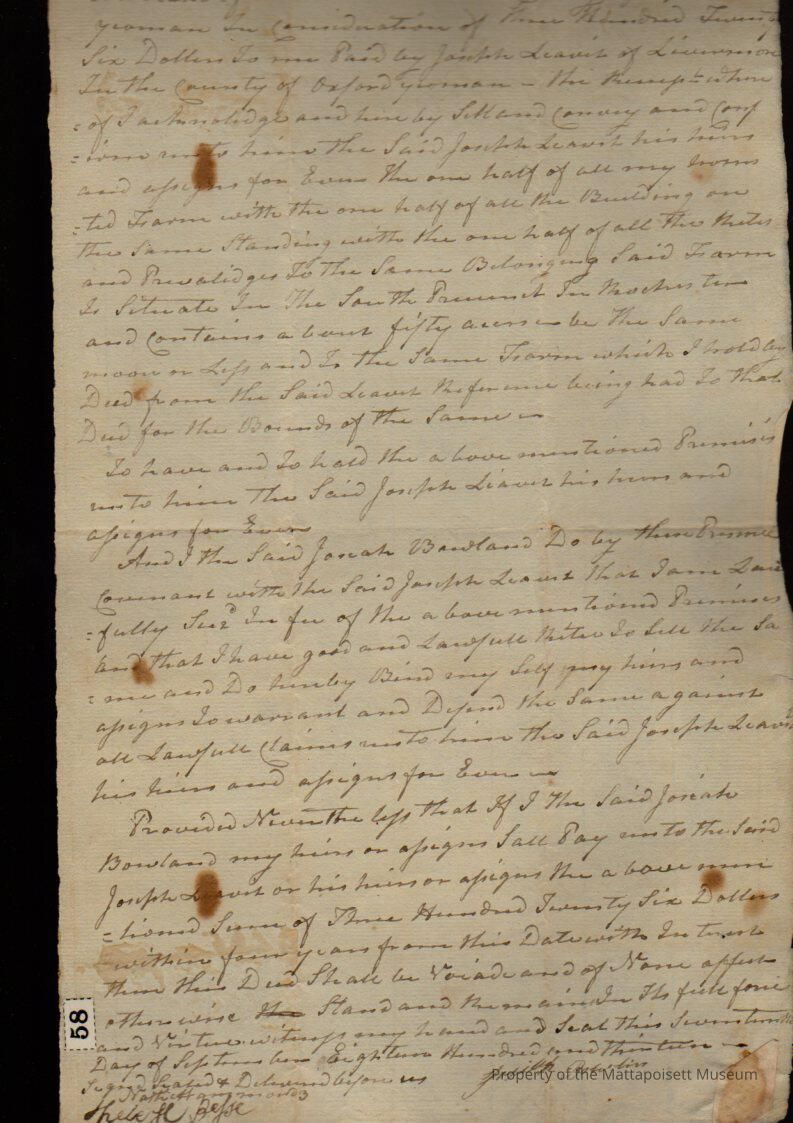 yeoman In Consideration of Three Hundred Twenty
Six Dollers To me Paid by Joseph Leavit of Livermore
In the County of Oxford yeoman - the Recept where
=of I acknolidge and here by Sell and Convey and Conf
=irm unto him the Said Joseph Leavit his heirs
and assigns for Ever the one half of all my homs
=ted Farm with the one half of all the Building on
the Same Standing with the one half of all the Rites
and Prevalidges To the Same Belonging Said Farm
Is Situate In The South Precinct In Rochester
and Contains about fifty acers be the Same
moor or Less and Is the Same Farm which I hold by
Deed from the Said Leavit Reference being had To that
Deed for the Bounds of the Same
To have and To hold the above mentioned Premises
unto him the Said Joseph Leavit his heirs and
assigns for Ever
And I the Said Josiah Bowland Do by these Presence
Covenant with the Said Joseph Leavit that I am Law
=fully In fee of the above mentioned Premises
and that I have good and Lawfull Rites To Sell the Sa
=me and Do hereby Bind my Self my heirs and
assigns To warrant and Defend the Same against
all Lawfull Claims unto him the Said Joseph Leavit
his heirs and assigns for Ever
Provided Never the less that If I the Said Josiah
Bowland my heirs or assigns Sall Pay unto the Said
Joseph Leavit or his heirs or assigns the above men
=tioned Sum of Three Hundred Twenty Six Dollers
within four years from this Date with Interest
then this Deed Shall be Voide and of None affect
otherwise Stand and Remain In Its full force
and Virtue witness my hand and Seal this
Day of September Eighteen Hundred and thirteen
Signed Sealed & Delivered before us
Property of the Mattapoisett Museum
58